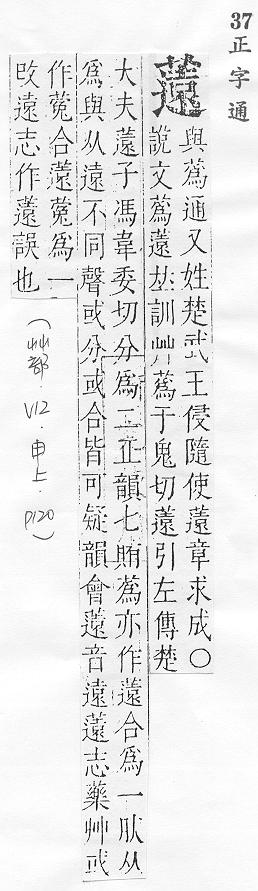 37 正字通
薳
與蔿通又姓楚武王侵隨使薳章求成〇
說文蔿薳𠀤訓艸蔿于鬼切薳引左傳楚
大夫薳子馮韋委切分爲二正韻七賄蔿亦作薳合爲一肰从
爲與从遠不同聲或分或合皆可疑韻會薳音遠薳志藥艸或
作蒬合薳蒬爲一
攺遠志作薳誤也
(艸部．V12．申上．P120)